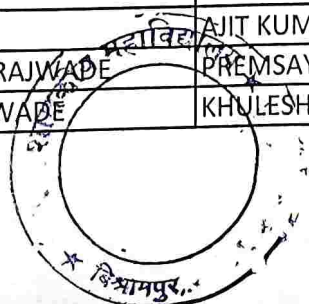 AJIT KUM
RAJWADE PREMSAY
WADE KHULESH
महाविद्यालय
★ बिश्रामपुर ★